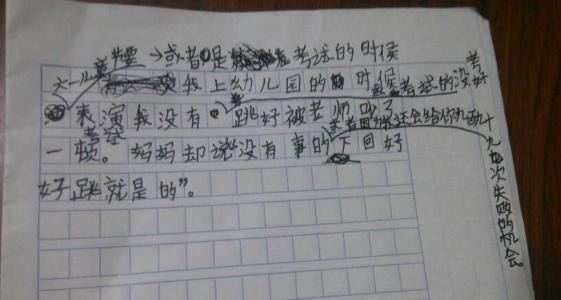 →或者是考试的时候
六一儿童节要我上幼儿园的时候考试的没考好
表演我没有跳好被老师叫了
考室
一顿。妈妈却说没有事的下回好
还会给你九百九十九次失败的机会。
好跳就是的”。